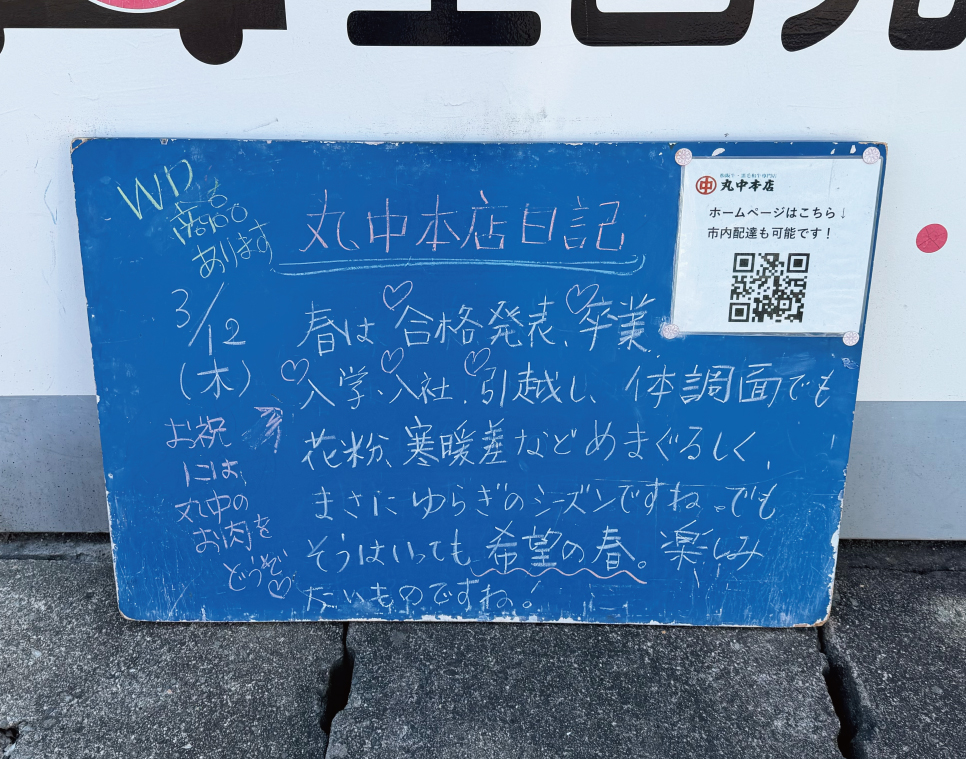 WD
商品
あります
丸中本店日記
3/12
(木)
春は 合格発表、卒業、
入学、入社、引越し、体調面でも
花粉、寒暖差などめまぐるしく、
まさにゆらぎのシーズンですね。でも
そうはいっても希望の春。楽しみ
たいものですね!
お祝
には、
丸中の
お肉を
どうぞ♡
中 丸中本店
ホームページはこちら↓
市内配達も可能です!